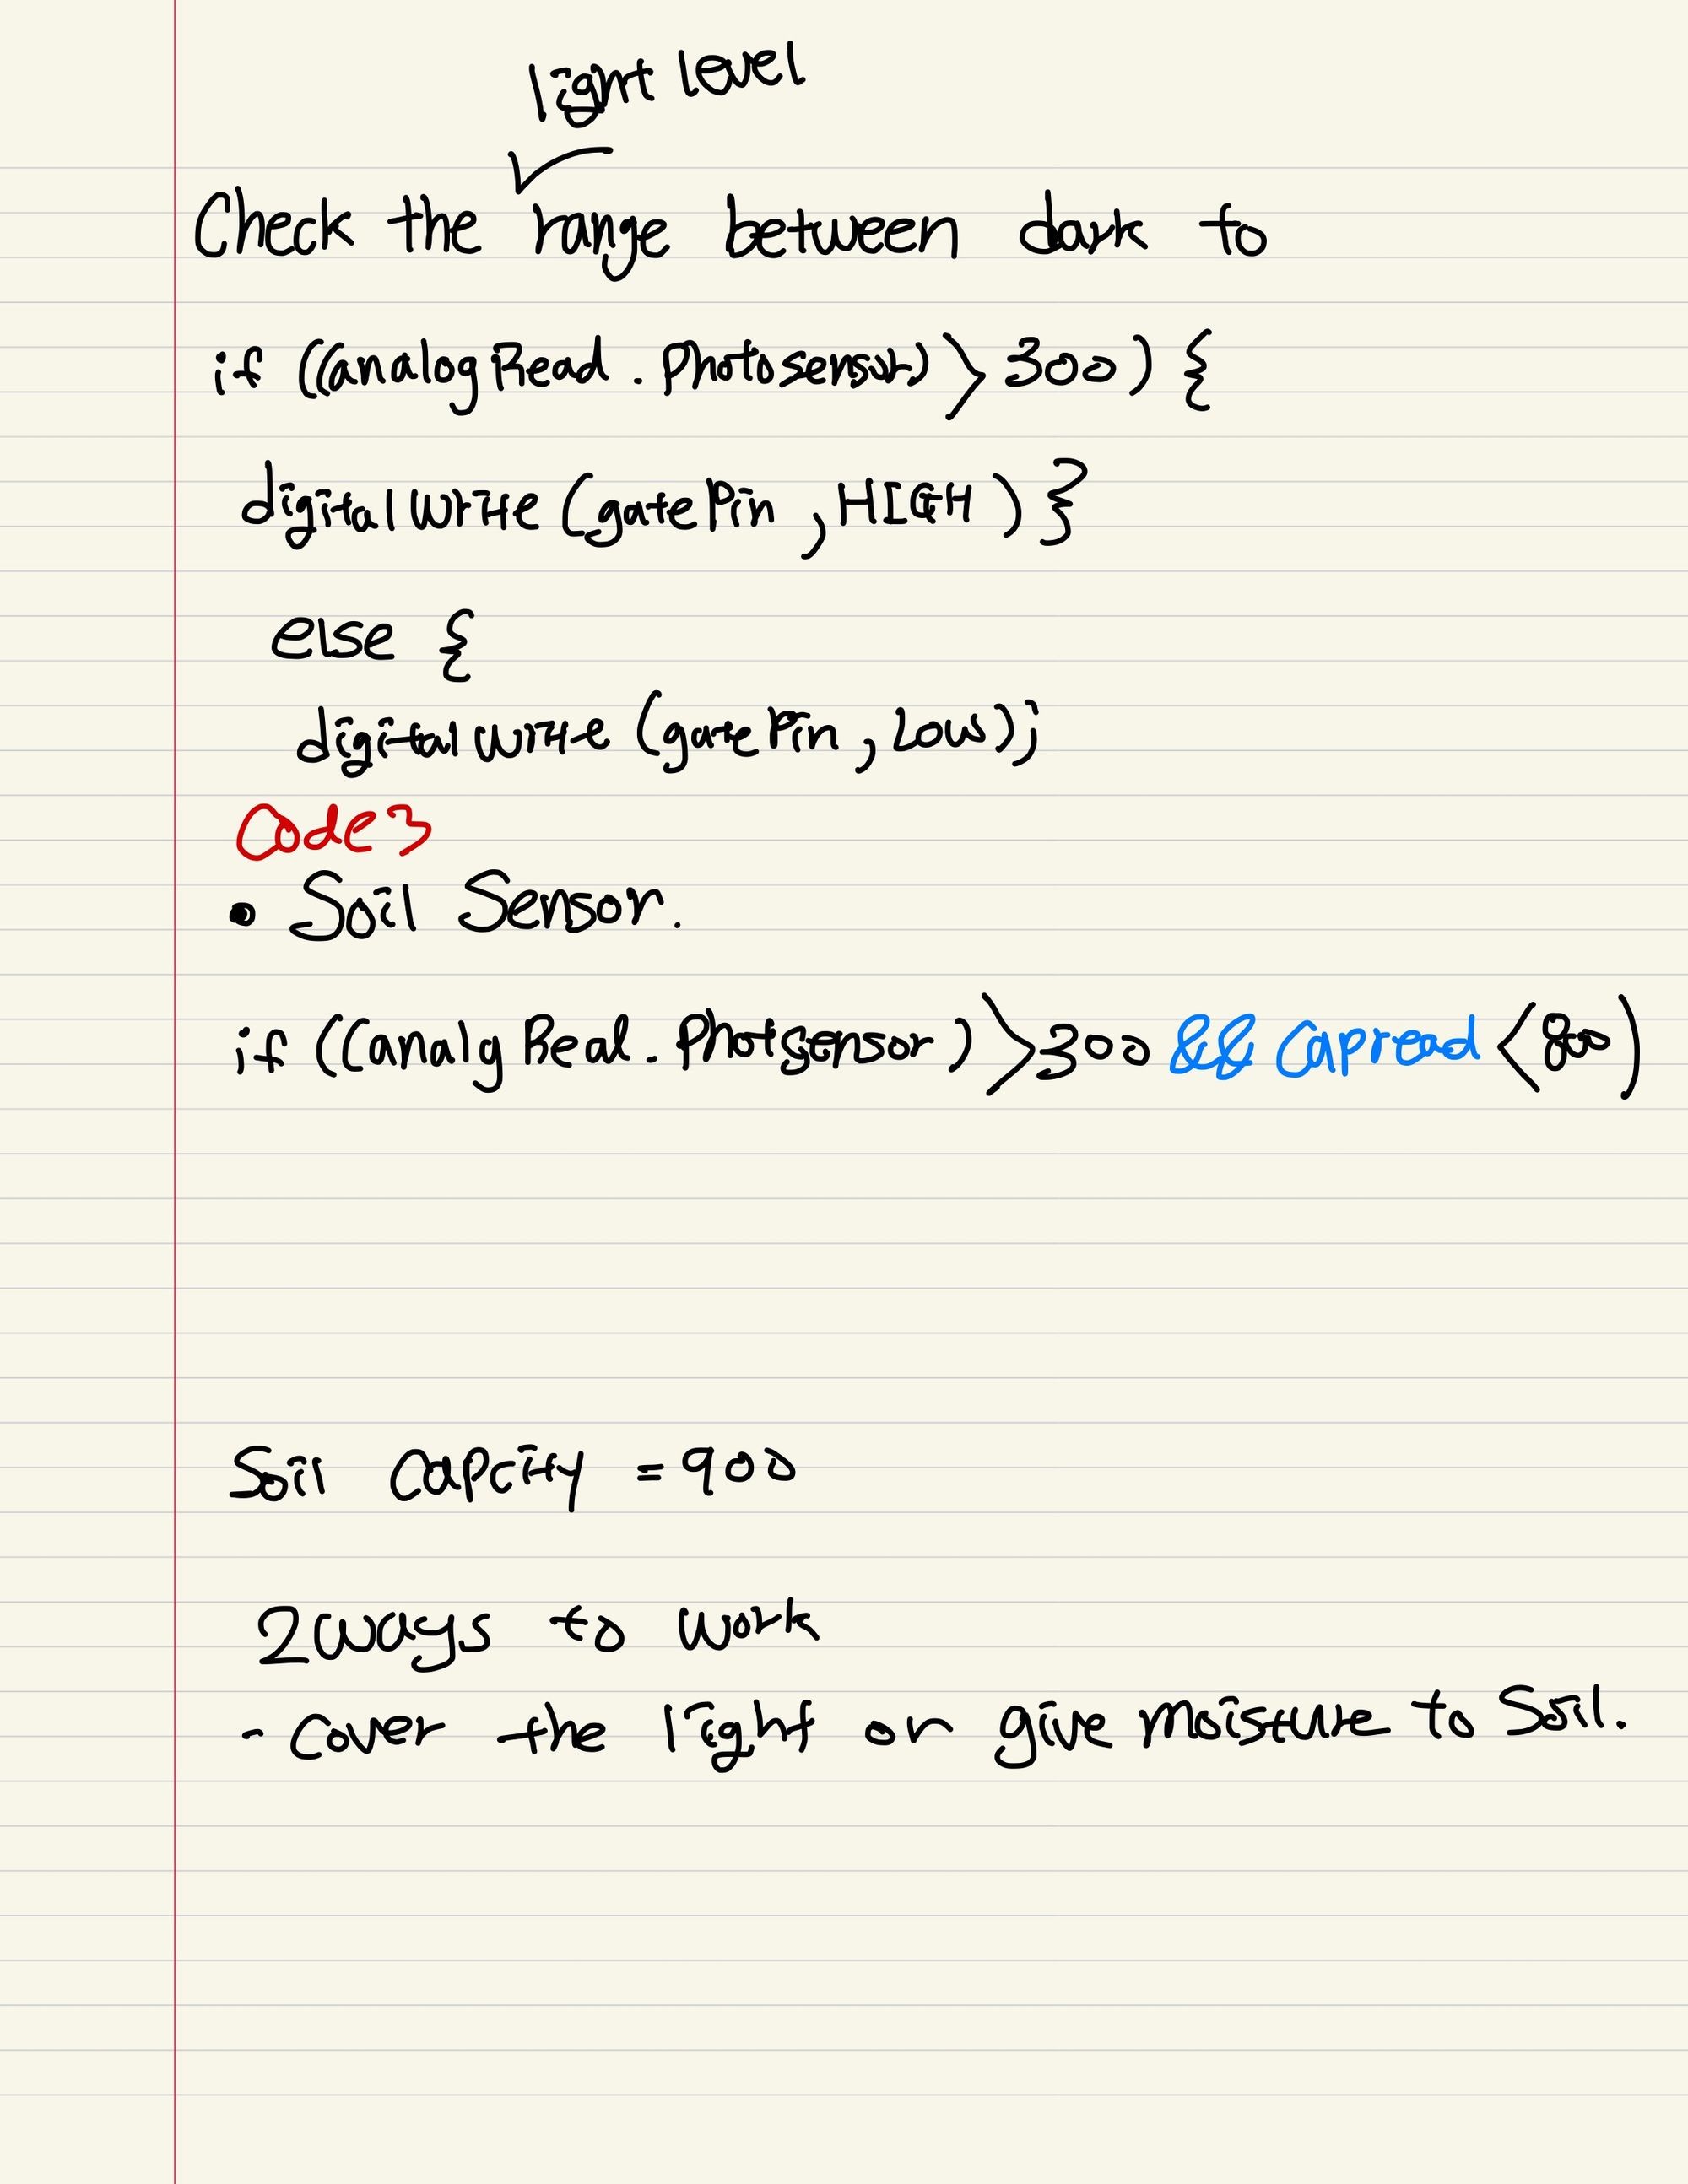 light level
Check the range between dark to
if ((analogRead . Photosensor) > 300) {
digital Write (gate Pin , HIGH ) }
else {
digital Write (gate Pin , LOW ));
Code3
• Soil Sensor.
if ((analg Read . Photsensor ) > 300 && Capread < 800)
Soil Capcity = 900
2ways to work
- cover the light or give moisture to Soil.